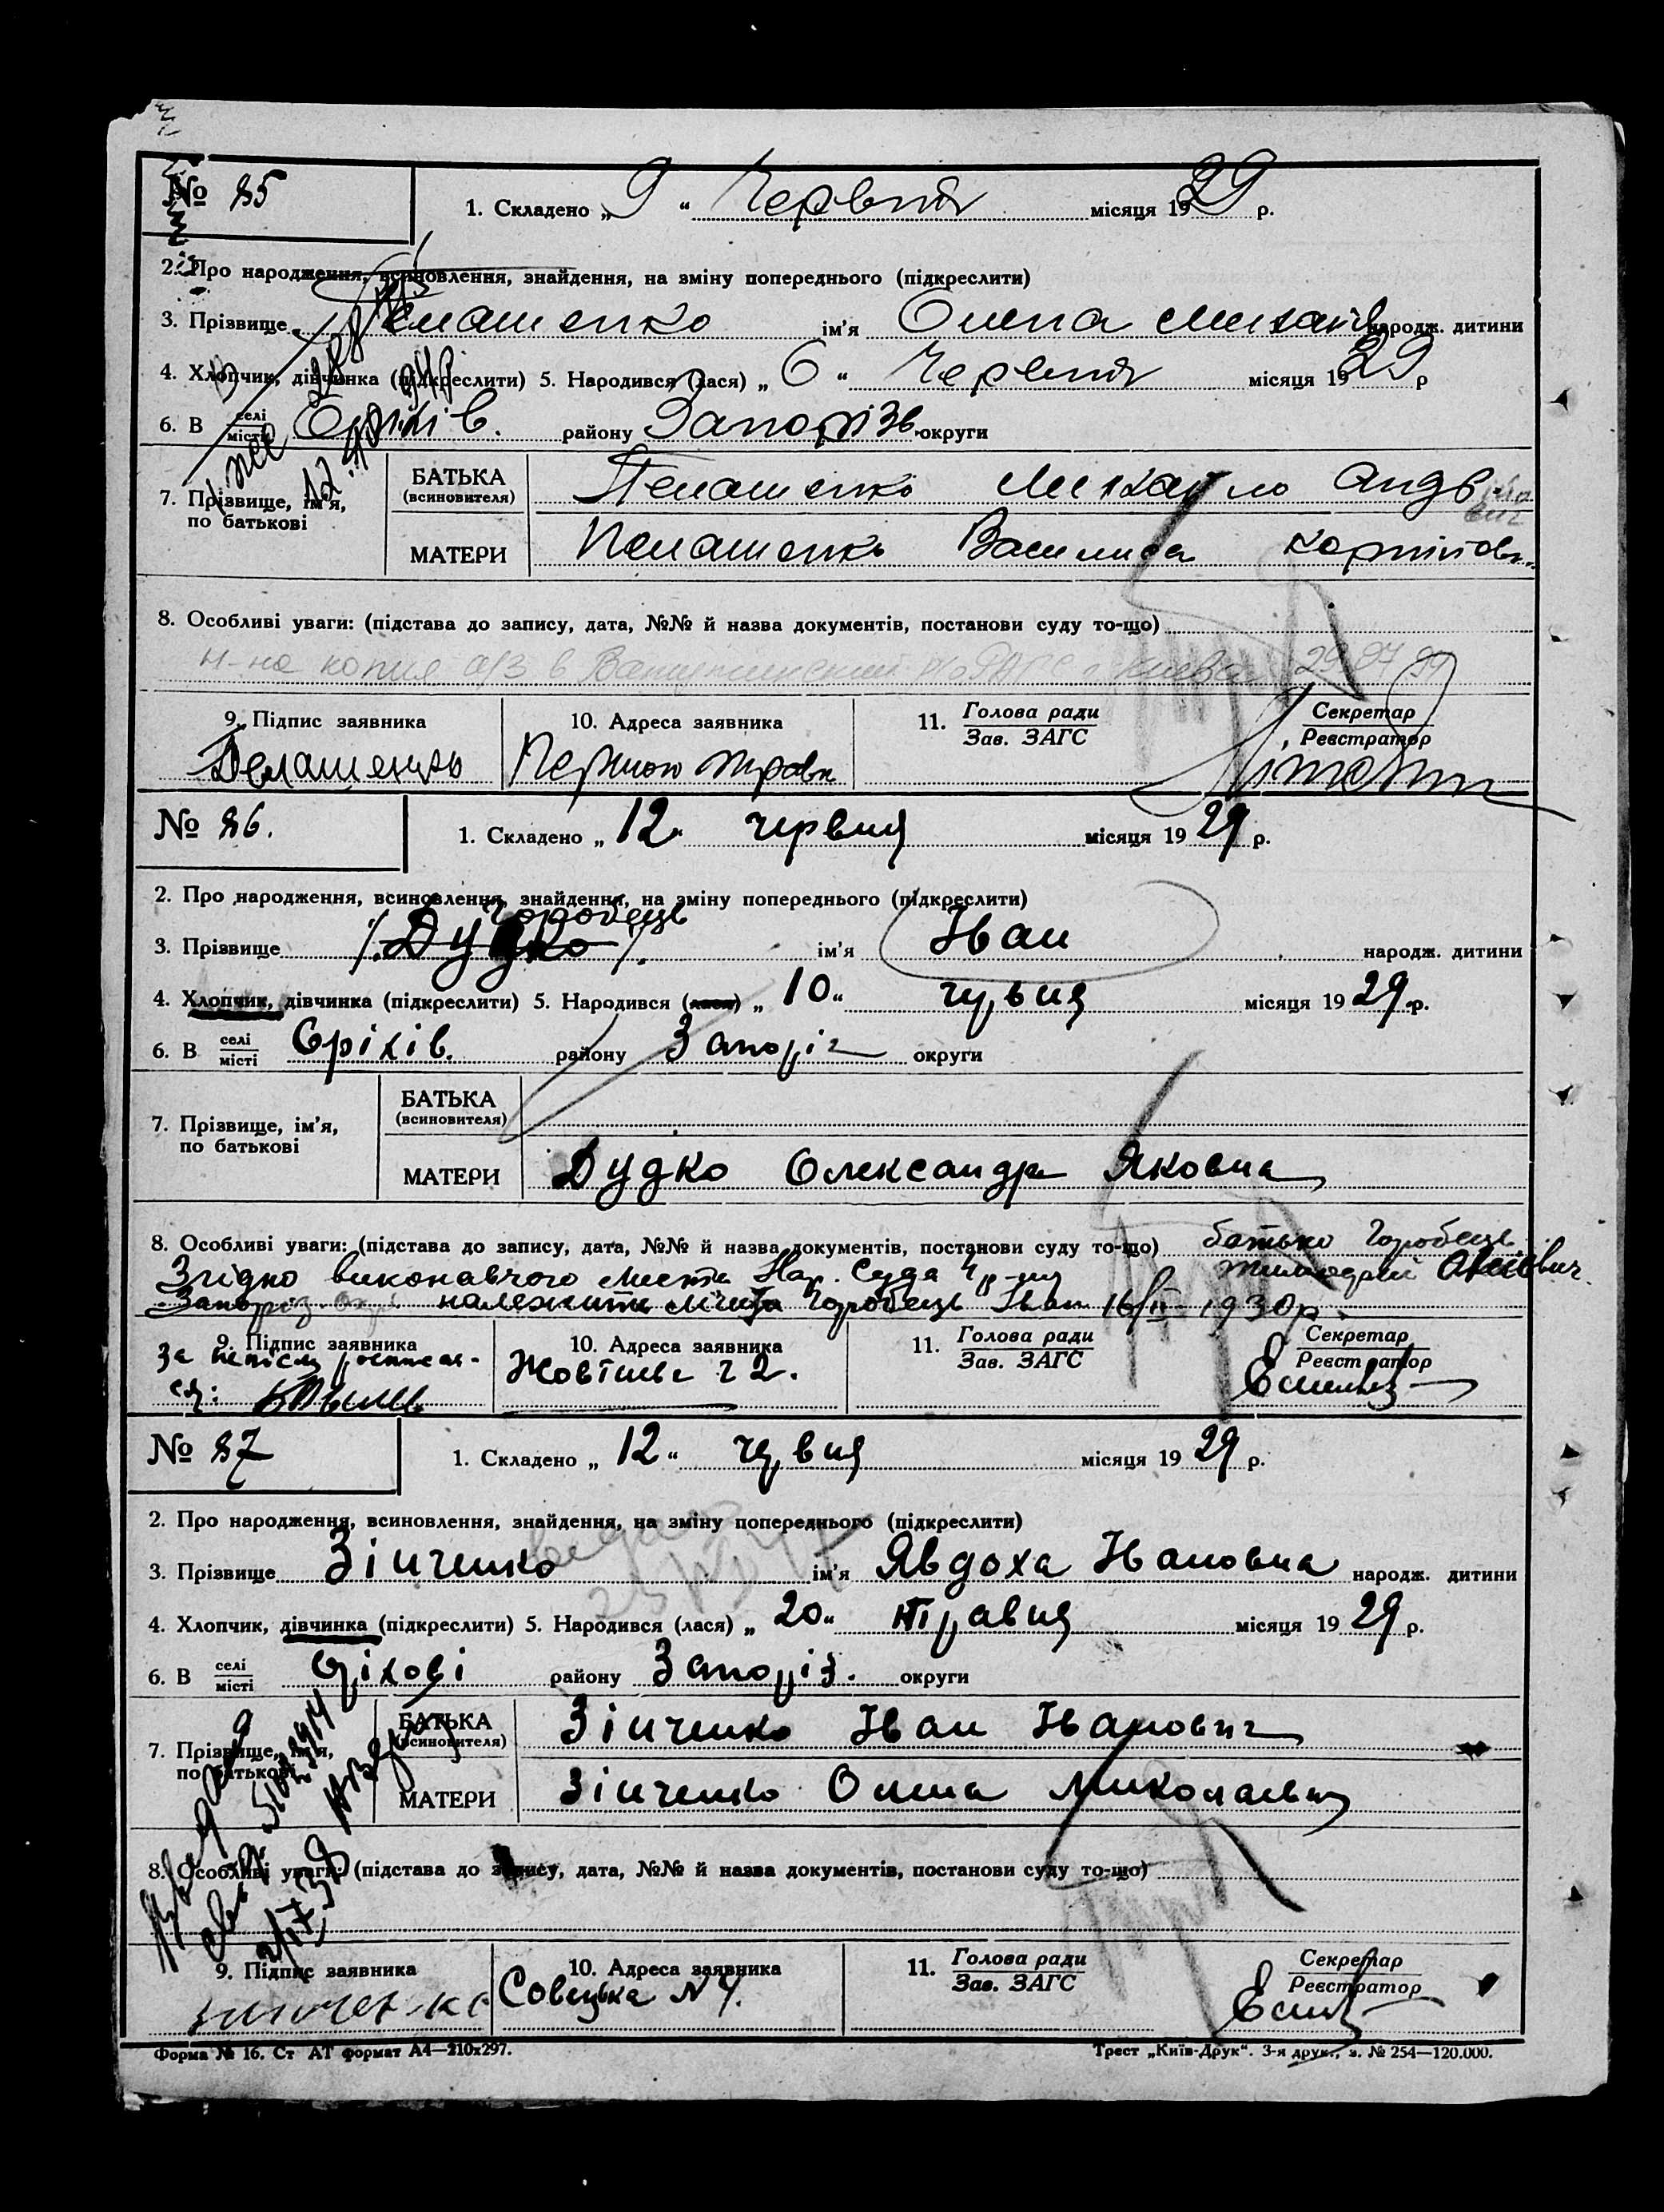 № 85
1. Складено „ 9 “ Червня місяця 1929 р.
2. Про народження, всиновлення, знайдення, на зміну попереднього (підкреслити)
3. Прізвище Пелашенко ім’я Олена народж. дитини
4. Хлопчик, дівчинка (підкреслити) 5. Народився (лася) „ 6 “ Червня місяця 1929 р
6. В селі місті Оріхів. району Запоріз. округи
7. Прізвище, ім’я, по батькові
БАТЬКА (всиновителя) Пелашенко Михайло
МАТЕРИ Пелашенко Василиса
8. Особливі уваги: (підстава до запису, дата, №№ й назва документів, постанови суду то-що)
н-на копия а/з в
9. Підпис заявника 10. Адреса заявника 11. Голова ради Зав. ЗАГС Секретар Реєстратор
Пелашенко Першого травн
№ 86.
1. Складено „ 12 “ червня місяця 1929 р.
2. Про народження, всиновлення, знайдення, на зміну попереднього (підкреслити)
Горобець
3. Прізвище Дудко ім’я Іван народж. дитини
4. Хлопчик, дівчинка (підкреслити) 5. Народився (лася) „ 10 “ червня місяця 1929 р.
6. В селі місті Оріхів. району Запоріз округи
7. Прізвище, ім’я, по батькові
БАТЬКА (всиновителя)
МАТЕРИ Дудко Олександра Яковна
8. Особливі уваги: (підстава до запису, дата, №№ й назва документів, постанови суду то-що) батько Горобець
Згідно виконавчого листа Нар. Суда
Запоріз. Горобець Іван 16/II 1930 р.
9. Підпис заявника 10. Адреса заявника 11. Голова ради Зав. ЗАГС Секретар Реєстратор
Жовтнева ч 2.
№ 87
1. Складено „ 12 “ червня місяця 1929 р.
2. Про народження, всиновлення, знайдення, на зміну попереднього (підкреслити)
3. Прізвище Зінченко ім’я Явдоха Івановна народж. дитини
4. Хлопчик, дівчинка (підкреслити) 5. Народився (лася) „ 20 “ травня місяця 1929 р.
6. В селі місті Оріхові району Запоріз. округи
7. Прізвище, ім’я, по батькові
БАТЬКА (всиновителя) Зінченко Іван Іванович
МАТЕРИ Зінченко Олена Миколаевна
8. Особливі уваги: (підстава до запису, дата, №№ й назва документів, постанови суду то-що)
9. Підпис заявника 10. Адреса заявника 11. Голова ради Зав. ЗАГС Секретар Реєстратор
Совецька N 4.
Форма № 16. Ст АТ формат А4—210х297. Трест „Київ-Друк“. 3-я друк., з. № 254—120.000.